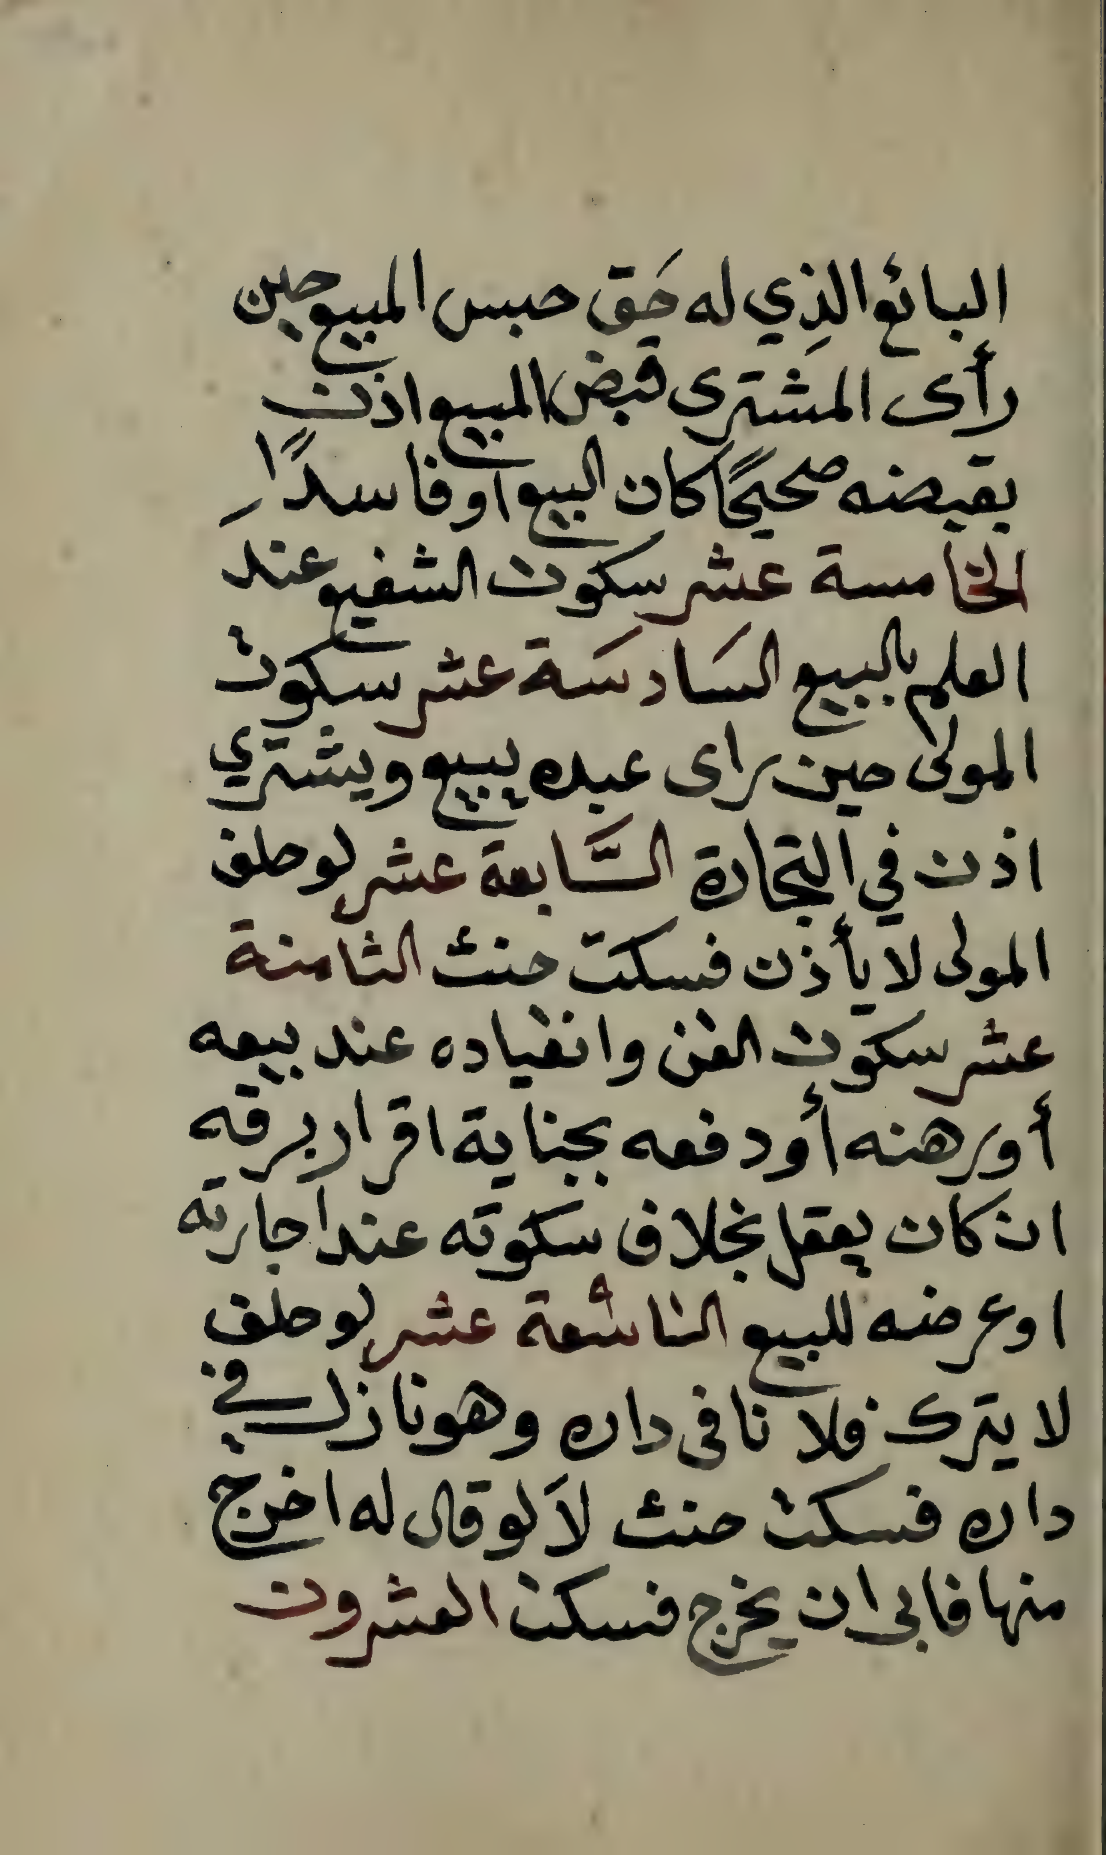 البائع الذِي له حَق حبس المبيع حين
رأى المشترى قبض المبيع اذن
بقبضه صحيحًا كان البيع أو فاسدًا
الخامسة عشر سكوت الشفيع عند
العلم بالبيع السَادسَة عشر سكوت
المولى حين راى عبده يبيع ويشتري
اذن في التجارة السَّابعة عشر لو حلف
المولى لا يأذن فسكت حنث الثامنة
عشر سكوت القن وانقياده عند بيعه
أو رهنه أو دفعه بجناية اقرار برقه
ان كان يعقل بخلاف سكوته عند اجارته
او عرضه للبيع التاسعة عشر لو حلف
لا يترك فلانا فى داره وهو نازل في
داره فسكت حنث لاَ لو قال له اخرج
منها فابى ان يخرج فسكت العشرون